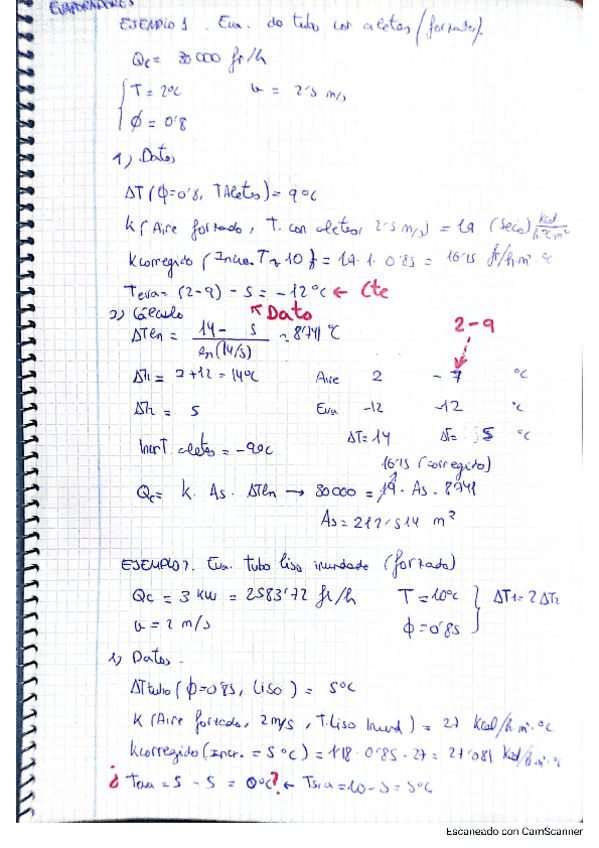 EVAPORADORES
EJEMPLO 1. Eva. de tubo con aletas (forzado).
Qc = 30000 fr/h
T = 2ºC v = 2'5 m/s
ϕ = 0'8
1) Datos
ΔT (ϕ=0'8, T Aletas) = 9ºC
K (Aire forzado, T. con aletas, 2'5 m/s) = 19 (seco) kcal/hºC m²
K corregido (Incre. T ≈ 10) = 19·1·0'85 = 16'15 fr/h·m²·ºC
Teva = (2-9) - 5 = -12ºC ← Cte
2) Cálculo ↖ Dato
2-9
ΔTln = 14 - 5 / ln(14/5) = 8'741 ºC
Δt1 = 2+12 = 14ºC Aire 2 -7 ºC
Δt2 = 5 Eva -12 -12 ºC
ΔT=14 ΔT= 5 ºC
IncrT. aletas = -9ºC
16'15 (corregido)
Qc = K · As · ΔTln → 30000 = 19 · As · 8'741
As = 212'514 m²
EJEMPLO 2. Eva. tubo liso inundado (forzado)
Qc = 3 KW = 2583'72 fr/h T = 10ºC ΔT1 = 2 ΔT2
v = 2 m/s ϕ = 0'85
1) Datos.
ΔT tubo (ϕ=0'85, liso) = 5ºC
K (Aire forzado, 2 m/s, T. liso Inund) = 27 Kcal/h·m²·ºC
K corregido (Incr. = 5ºC) = 1'18·0'85·27 = 27'081 Kcal/h·m²·ºC
¿ Teva = 5 - 5 = 0ºC? ← = 10-5 = 5ºC
Escaneado con CamScanner